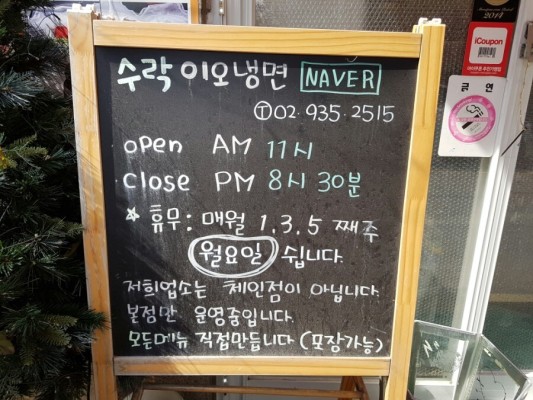 수락 이오냉면 NAVER
Ⓣ 02.935.2515
open AM 11시
close PM 8시 30분
★ 휴무: 매월 1.3.5 째주
월요일 쉽니다.
저희업소는 체인점이 아닙니다.
본점만 운영중입니다.
모든메뉴 직접만듭니다 (포장가능)
2014
iCoupon
금연